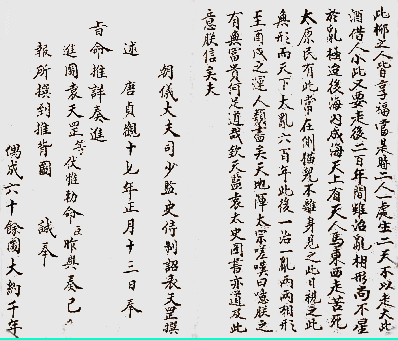 此鄉之人皆享福當是時二人一處生二天不以走大此
酒借人小此又要走後二百年間雖治亂相形尚不星
於亂極迨後海內成海天上有天人馬東西走苦死
太原民有此常在側猫兒不離身見之此日視之此
無形而天下大亂六百年此後一治一亂兩兩相形
至酉戌之運人類盡矣天地渾太宗嗟嘆曰意朕之
有無富貴何足道哉欽天監袁太史圖書亦道及此
意朕信矣夫
朝儀大夫司少監史侍制詔袁天罡撰
述 唐貞觀十七年正月十三日奉
旨命推詳奏進
進圖袁天罡等伏惟勅命臣昨與奏已
報所撰到推背圖 誠奉
偶成六十餘圖大約千年